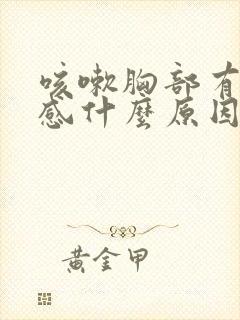 咳嗽胸部有
感什麼原因
黃金甲